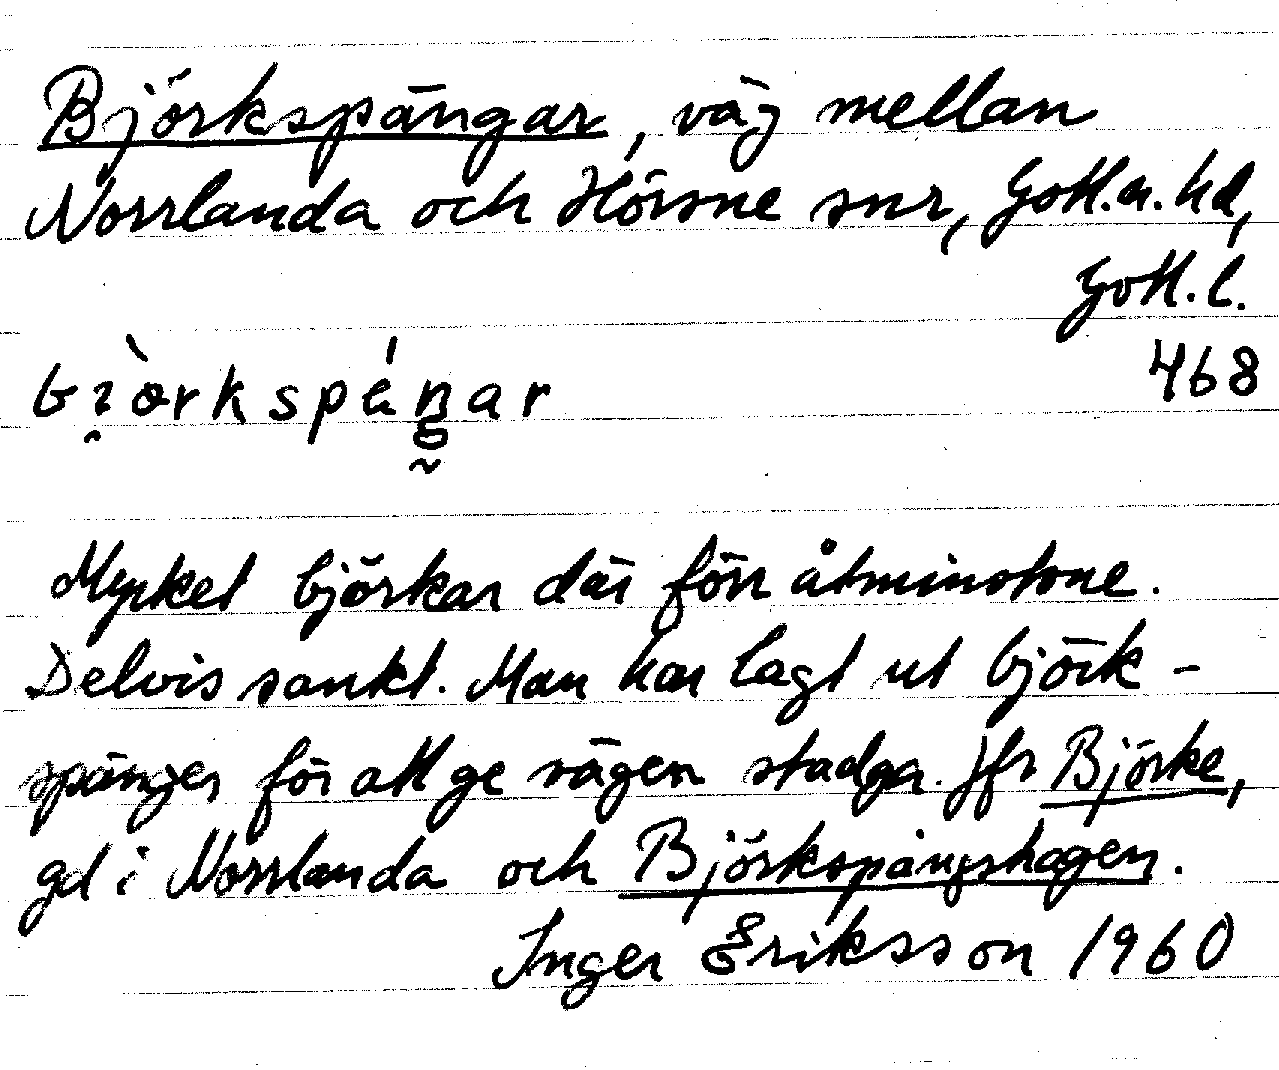 Björkspängar, väg mellan
Norrlanda och Hörsne snr, Gotl.n.hd,
Gotl.l.
468
Mycket björkar där förr åtminstone.
Delvis sankt. Man har lagt ut björk-
spänger för att ge vägen stadga. Jfr Björke,
gd i Norrlanda och Björkspängshagen.
Inger Eriksson 1960